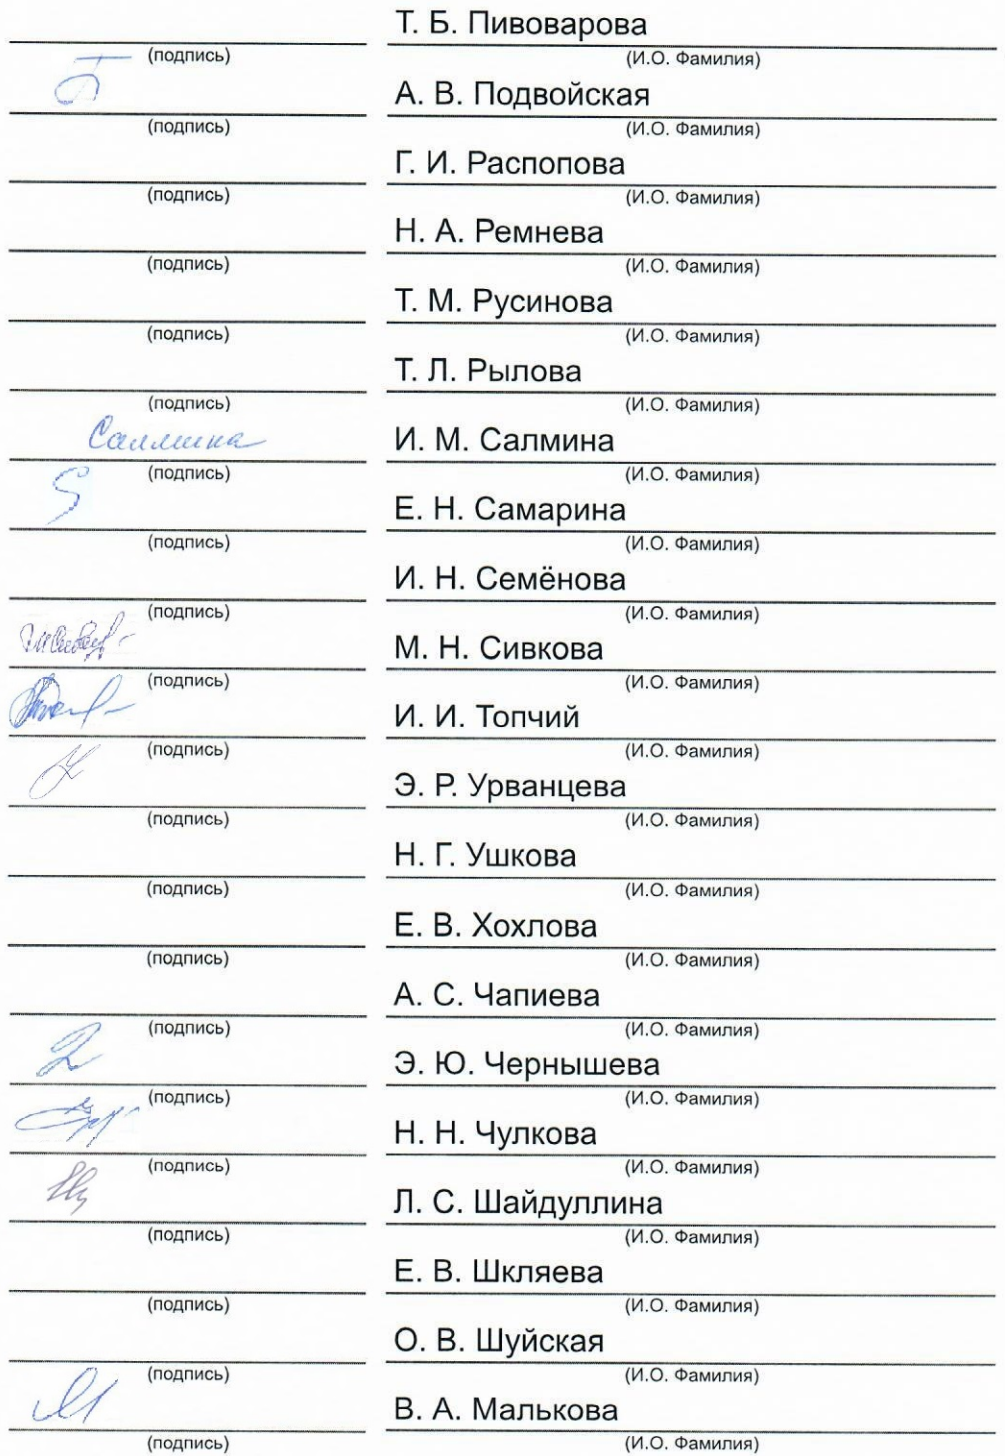 Т. Б. Пивоварова
(подпись) (И.О. Фамилия)
А. В. Подвойская
(подпись) (И.О. Фамилия)
Г. И. Распопова
(подпись) (И.О. Фамилия)
Н. А. Ремнева
(подпись) (И.О. Фамилия)
Т. М. Русинова
(подпись) (И.О. Фамилия)
Т. Л. Рылова
(подпись) (И.О. Фамилия)
Салмина И. М. Салмина
(подпись) (И.О. Фамилия)
Е. Н. Самарина
(подпись) (И.О. Фамилия)
И. Н. Семёнова
(подпись) (И.О. Фамилия)
М. Н. Сивкова
(подпись) (И.О. Фамилия)
И. И. Топчий
(подпись) (И.О. Фамилия)
Э. Р. Урванцева
(подпись) (И.О. Фамилия)
Н. Г. Ушкова
(подпись) (И.О. Фамилия)
Е. В. Хохлова
(подпись) (И.О. Фамилия)
А. С. Чапиева
(подпись) (И.О. Фамилия)
Э. Ю. Чернышева
(подпись) (И.О. Фамилия)
Н. Н. Чулкова
(подпись) (И.О. Фамилия)
Л. С. Шайдуллина
(подпись) (И.О. Фамилия)
Е. В. Шкляева
(подпись) (И.О. Фамилия)
О. В. Шуйская
(подпись) (И.О. Фамилия)
В. А. Малькова
(подпись) (И.О. Фамилия)